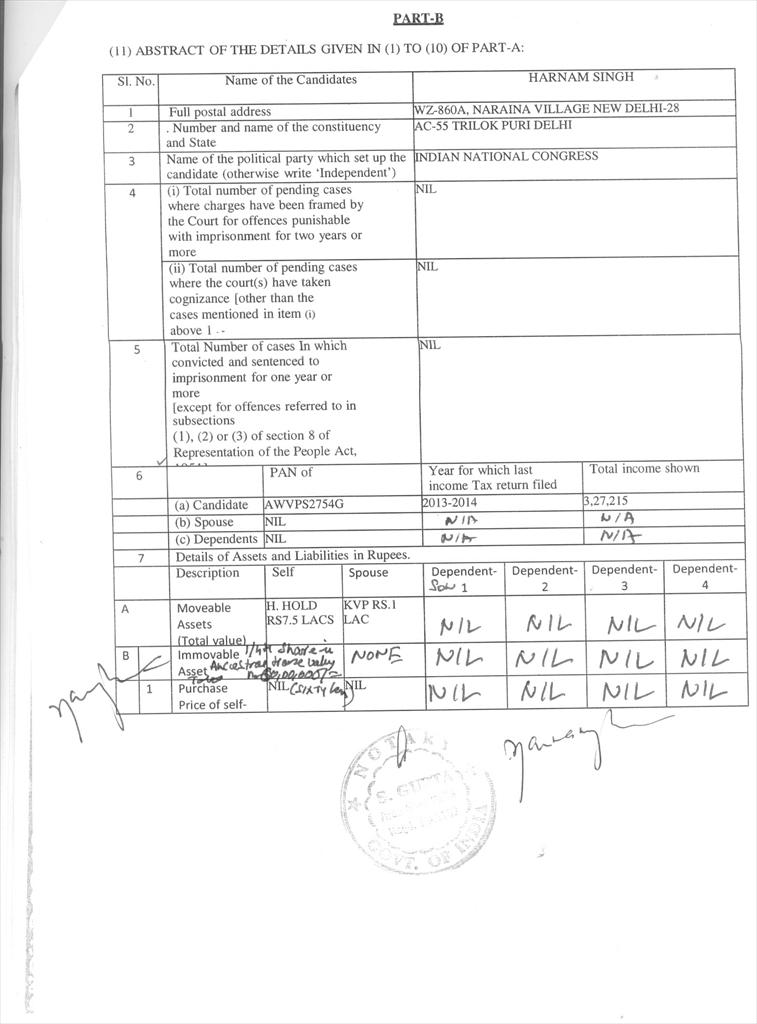 PART-B
(11) ABSTRACT OF THE DETAILS GIVEN IN (1) TO (10) OF PART-A:
Sl. No. Name of the Candidates HARNAM SINGH
1 Full postal address WZ-860A, NARAINA VILLAGE NEW DELHI-28
2 . Number and name of the constituency AC-55 TRILOK PURI DELHI
and State
3 Name of the political party which set up the INDIAN NATIONAL CONGRESS
candidate (otherwise write ‘Independent’)
4 (i) Total number of pending cases NIL
where charges have been framed by
the Court for offences punishable
with imprisonment for two years or
more
(ii) Total number of pending cases NIL
where the court(s) have taken
cognizance [other than the
cases mentioned in item (i)
above 1 --
5 Total Number of cases In which NIL
convicted and sentenced to
imprisonment for one year or
more
[except for offences referred to in
subsections
(1), (2) or (3) of section 8 of
Representation of the People Act,
6 PAN of Year for which last Total income shown
income Tax return filed
(a) Candidate AWVPS2754G 2013-2014 3,27,215
(b) Spouse NIL N/A N/A
(c) Dependents NIL N/A N/A
7 Details of Assets and Liabilities in Rupees.
Description Self Spouse Dependent- Dependent- Dependent- Dependent-
Son 1 2 3 4
A Moveable H. HOLD KVP RS.1
Assets RS7.5 LACS LAC NIL NIL NIL NIL
(Total value)
B Immovable 1/4th Share in NONE NIL NIL NIL NIL
Asset Ancestral House
60,00,000/=
1 Purchase NIL (Sixty NIL NIL NIL NIL NIL
Price of self-
NOTARY
S. GUPTA
GOVT. OF INDIA